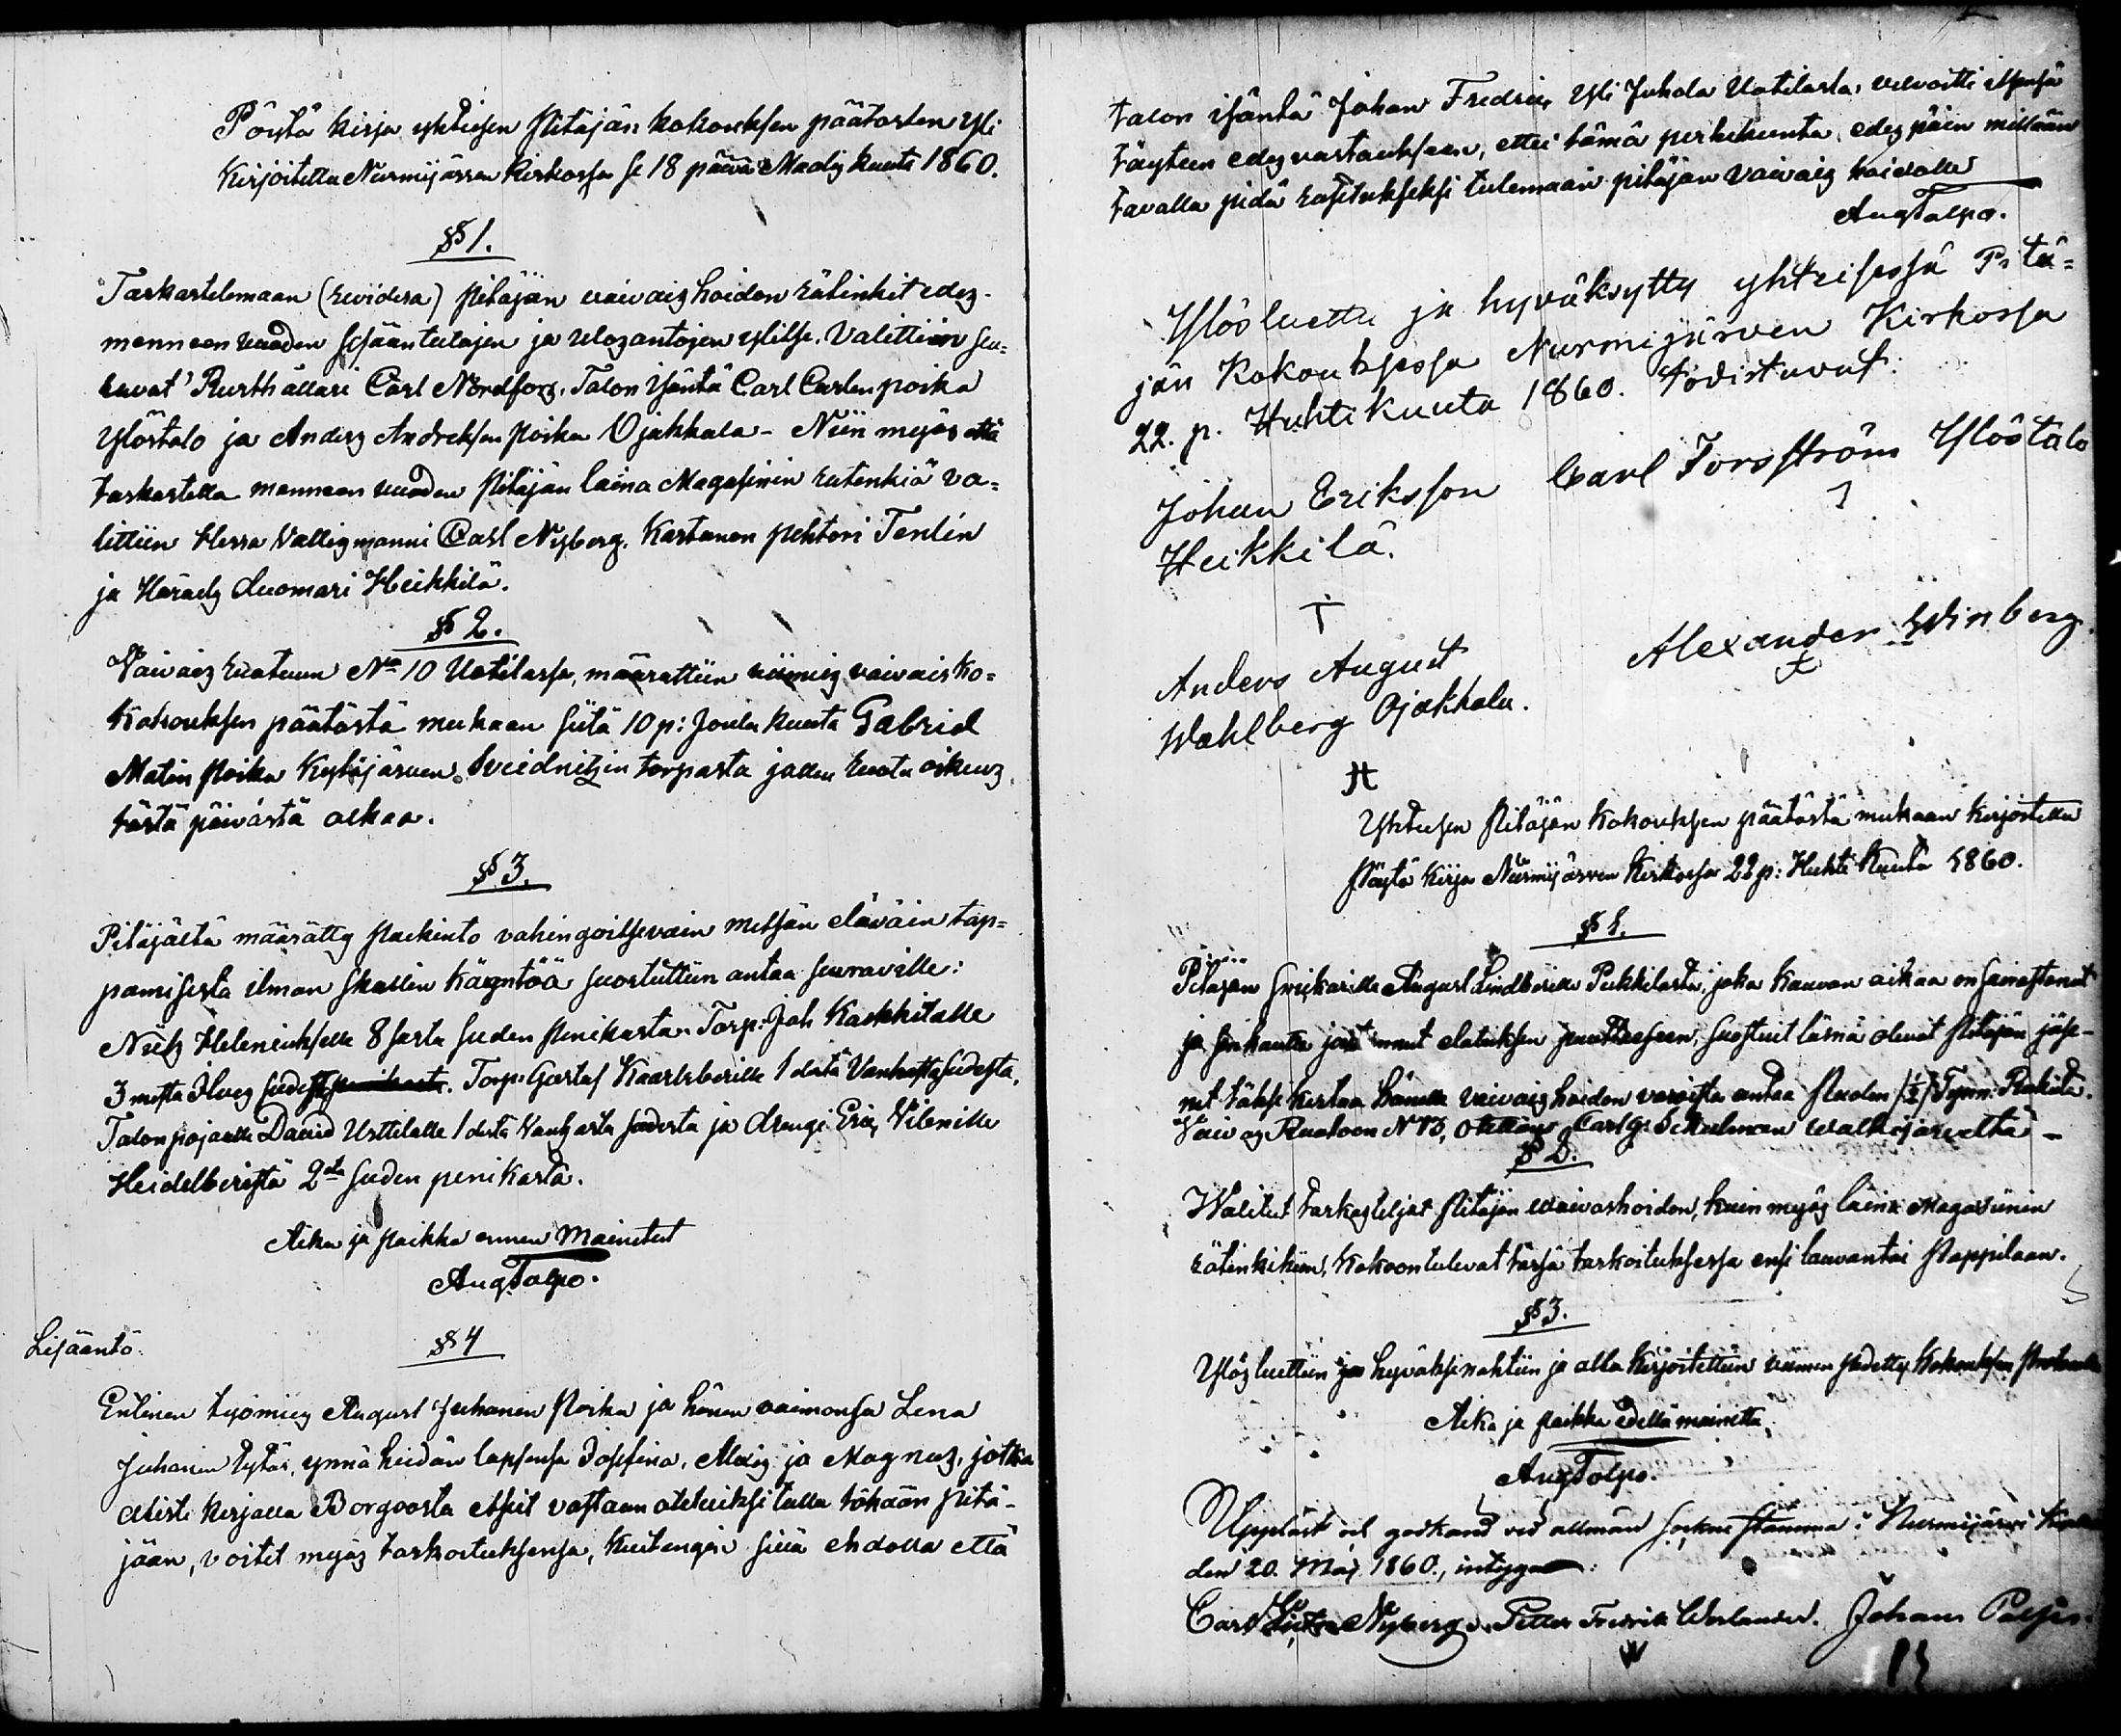 Pöytä kirja yhteisen Pitäjän kokouksen päätösten yli
Kirjoitettu Nurmijärven kirkossa se 18 päivä Maalis kuuta 1860.
§ 1.
Tarkastelemaan (revidera) Pitäjän vaivais hoidon rätinkit edes-
menneen vuoden sisääntulojen ja ulosantojen ylitse. Valittiin seu-
raavat Rusthållari Carl Nordfors, Talon isäntä Carl Carlen poika
Ylöstalo ja Anders Andreksen poika Ojakkala - Niin myös että
tarkastella menneen vuoden Pitäjän laina Magasinin rätenkiä va-
littiin Herra Vallesmanni Carl Nyberg, Kartanon pehtori Tenlén
ja Härads duomari Heikkilä.
§ 2.
Vaivais ruotuun No 10 Uotilassa, määrättiin viimeis vaivais ko-
kouksen päätöstä mukaan siitä 10 p: Joulu kuuta Gabriel
Matin Poika Kytäjärven Sveidnitzin torpasta jallen ruotu oikeus
tästä päivästä alkaa.
§ 3.
Pitäjältä määrätty Palkinto vahingoitsevain metsän eläväin tap-
pamisesta ilman skallin käyntöä suostuttiin antaa seuraville:
Niels Heleniukselle 8 sasta suden penikasta. Torp: Joh Kaskkitalle
3 mesta Ilves. Torp: Gustaf Kaarlsberille 1 destä Vanhasta sudesta,
Talon pojalle David Usttilalle 1 destä Vanhasta sudesta ja drengi Eric Vilenille
Heidelberistä 2:sta suden penikasta.
Aika ja paikka ennen mainitut
Aug Talpo.
Lisääntö: § 4
Entinen työmies August Juhanin Poika ja hänen vaimonsa Lena
Juhanin tytär, ynnä heidän lapsensa Josefina, Maija ja Magnus, jotka
atesti kirjalla Borgoosta itsit vastaan otetuiksi tulla tähään Pitä-
jään, voitit myös tarkoituksensa, kuitengin sillä ehdolla että
talon isäntä Johan Fredric Yli Juhola Uotilasta, velvoitti itsensä
täyteen edesvastaukseen, ettei tämä perhekunta, edes päin millään
tavalla pidä rasitukseksi tulemaan pitäjän vaivais hoidolle
Aug Talpo.
Ylösluettu ja hyväksytty yhteisessä Pitä-
jän Kokouksessa Nurmijärven Kirkossa
22. p. Huhtikuuta 1860. todistavat:
Johan Eriksson Carl Forsström Ylöstalo
Heikkilä.
Anders August Alexander Winberg.
Wahlberg Ojakkala.
Yhteisen Pitäjän Kokouksen päätöstä mukaan kirjoitettu
Pöytä kirja Nurmijärven Kirkossa 22 p: Huhti Kuuta 1860.
§ 1.
Pitäjän Krickarille August Lindberille Pekkilasta, joka kauvan aikaa on sairastanut
ja sen kautta joutunut elatuksen puutteeseen, suostuit läsnä olevat Pitäjän jäse-
net täksi kertaa hänelle vaivais hoidon varoista antaa Puolen (1/2) Tynn: Rukiita.
Vaivas Ruotoon N 13, otettiin Carl G. Schulman Walkjärveltä -
§ 2.
Walitut tarkasteljat Pitäjän waivashoidon, kuin myös laina Magasinin
rätinkihin, kokoontulevat tässä tarkoituksessa ensi lauvantai Pappilaan.
§ 3.
Ylös luettiin ja hyväksi nähtiin ja alla kirjoitettiin viimen pidetty kokouksen
Aika ja paikka edellä mainittu,
Aug Talpo.
Uppläst och godkänd vid allmän sockne stämma i Nurmijärvi
den 20. Maj 1860., intyga:
Carl Nyberg. Petter Fredrik Werlander. Johan